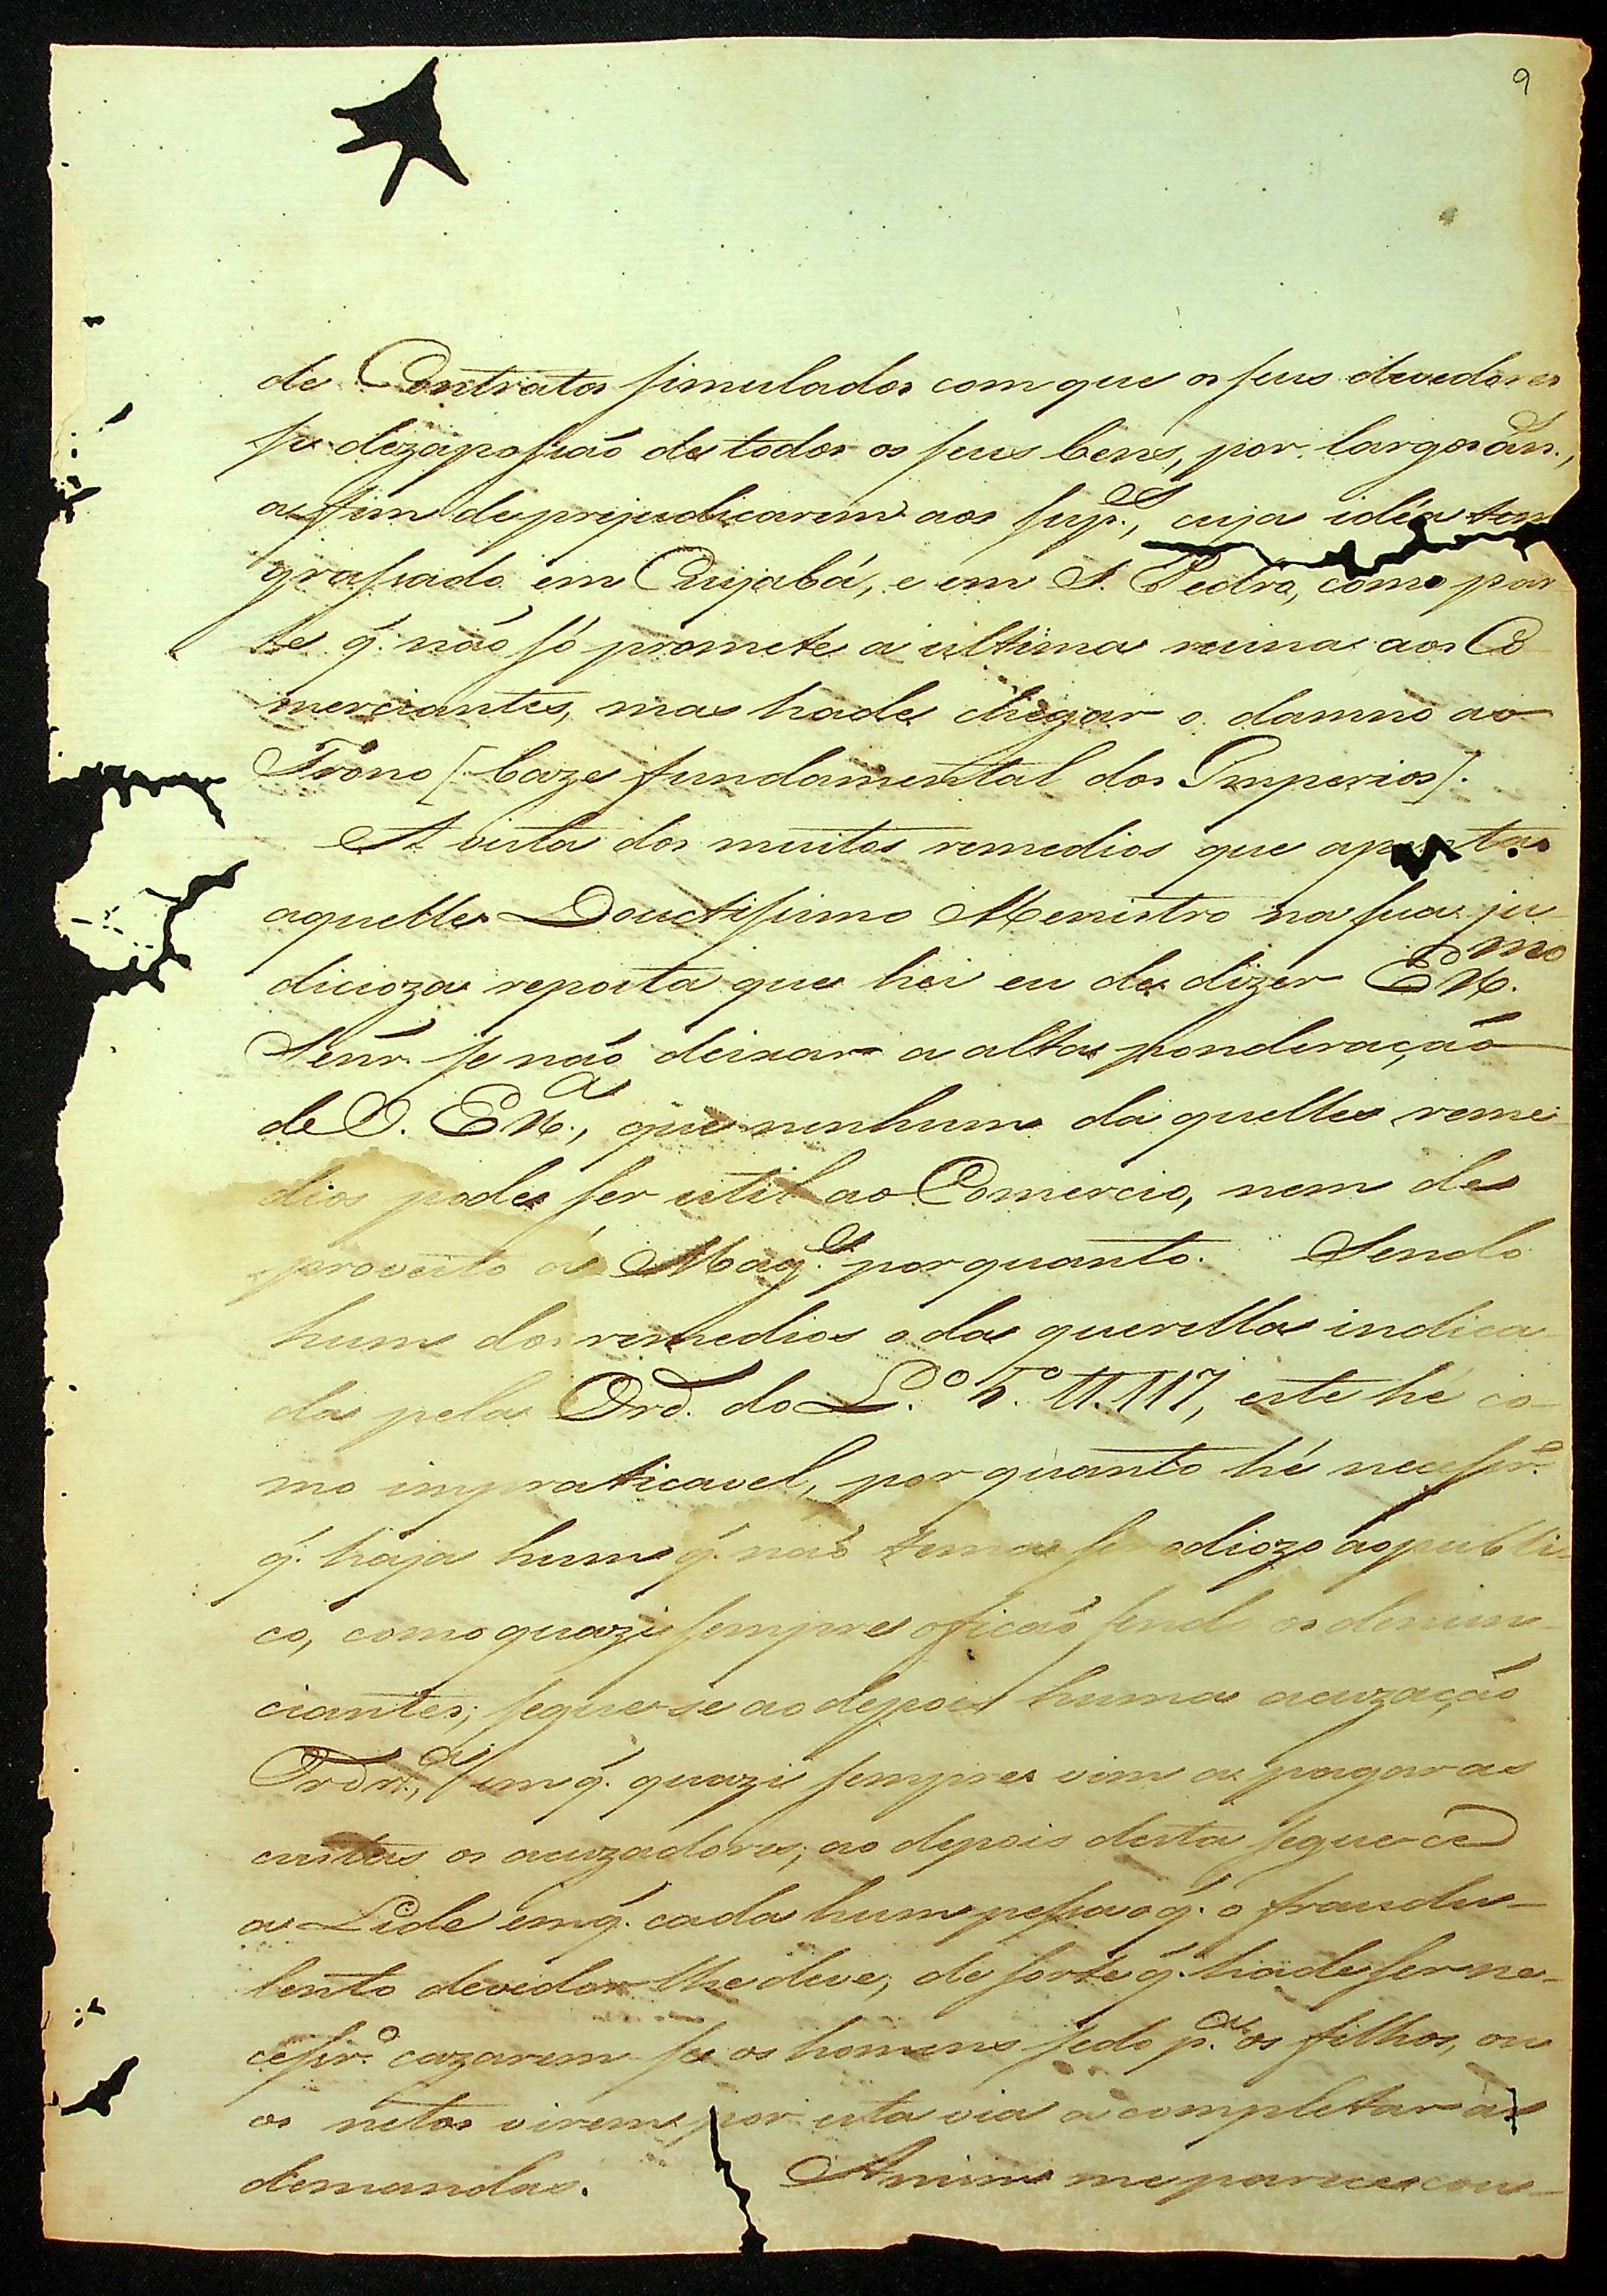 9
de Contratos simulados com que os seus devedores
se dezaposaõ de todos os seus bens, por largos an.,
a fim de prejudicarem aos sup.es, cuja idéa tem
grassado em Cuijabá, e em S. Pedro, como par-
te q. não só promete a ultima ruina aos Co-
merciantes, mas hade chegar o damno ao
Trono [baze fundamental dos Imperios].
A vista dos muitos remedios que aponta
aquelle Douctissimo Menistro na sua ju-
dicioza reposta que hei eu de dizer Ex.mo
Senr. se não deixar a alta ponderação
de V. Ex.a, que nenhum da quelles reme-
dios pode ser util ao Comercio, nem de
proveito á Mag.e porquanto. Sendo
hum dos remedios o da querella indica-
da pela Ord. do L.o 5.o tt. 117, este hé co-
mo impraticavel, por quanto hé necessr.o
q. haja hum q. não tema se odiozo ao publi-
co, como quazi sempre o ficaõ sendo os denun-
ciantes; segue-se ao depois huma acuzação
Ordr.a, em q. quazi sempre vim a pagar as
custas os acuzadores; ao depois desta segue-ce
a Lide em q. cada hum pessa o q. o fraudu-
lento devedor lhe deve, de sorte q. hade ser ne-
cessr.o cazarem se os homens sedo p.a os filhos, ou
os netos virem por esta via a completar as
demandas. A mim me parece con-